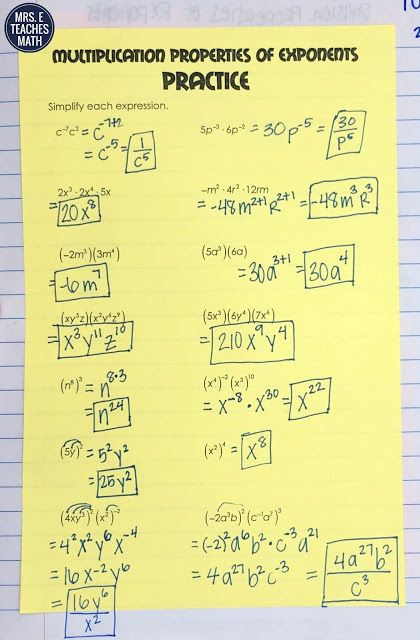 MRS. E
TEACHES
MATH
MULTIPLICATION PROPERTIES OF EXPONENTS
PRACTICE
Simplify each expression.
c⁻⁷c² = c⁻⁷⁺²
= c⁻⁵ = 1/c⁵
5p⁻³ · 6p⁻² = 30p⁻⁵ = 30/p⁵
2x³ · 2x⁴ · 5x
= 20x⁸
-m² · 4r² · 12rm
= -48m²⁺¹r²⁺¹ = -48m³r³
(-2m³)(3m⁴)
= -6m⁷
(5a³)(6a)
= 30a³⁺¹ = 30a⁴
(xy⁵z)(x²y⁶z⁹)
= x³y¹¹z¹⁰
(5x³)(6y⁴)(7x⁶)
= 210x⁹y⁴
(n⁸)³ = n⁸·³
= n²⁴
(x⁴)⁻² (x³)¹⁰
= x⁻⁸ · x³⁰ = x²²
(5y)² = 5²y²
= 25y²
(x²)⁴ = x⁸
(4xy³)² (x²)⁻²
= 4²x²y⁶x⁻⁴
= 16x⁻²y⁶
= 16y⁶/x²
(-2a³b)² (c⁻¹a⁷)³
= (-2)²a⁶b² · c⁻³a²¹
= 4a²⁷b²c⁻³ = 4a²⁷b²/c³